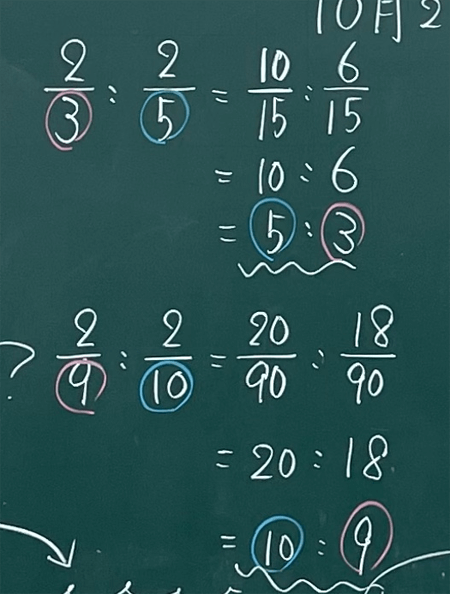 10月2
2/3 : 2/5 = 10/15 : 6/15
= 10 : 6
= 5 : 3
? 2/9 : 2/10 = 20/90 : 18/90
= 20 : 18
= 10 : 9